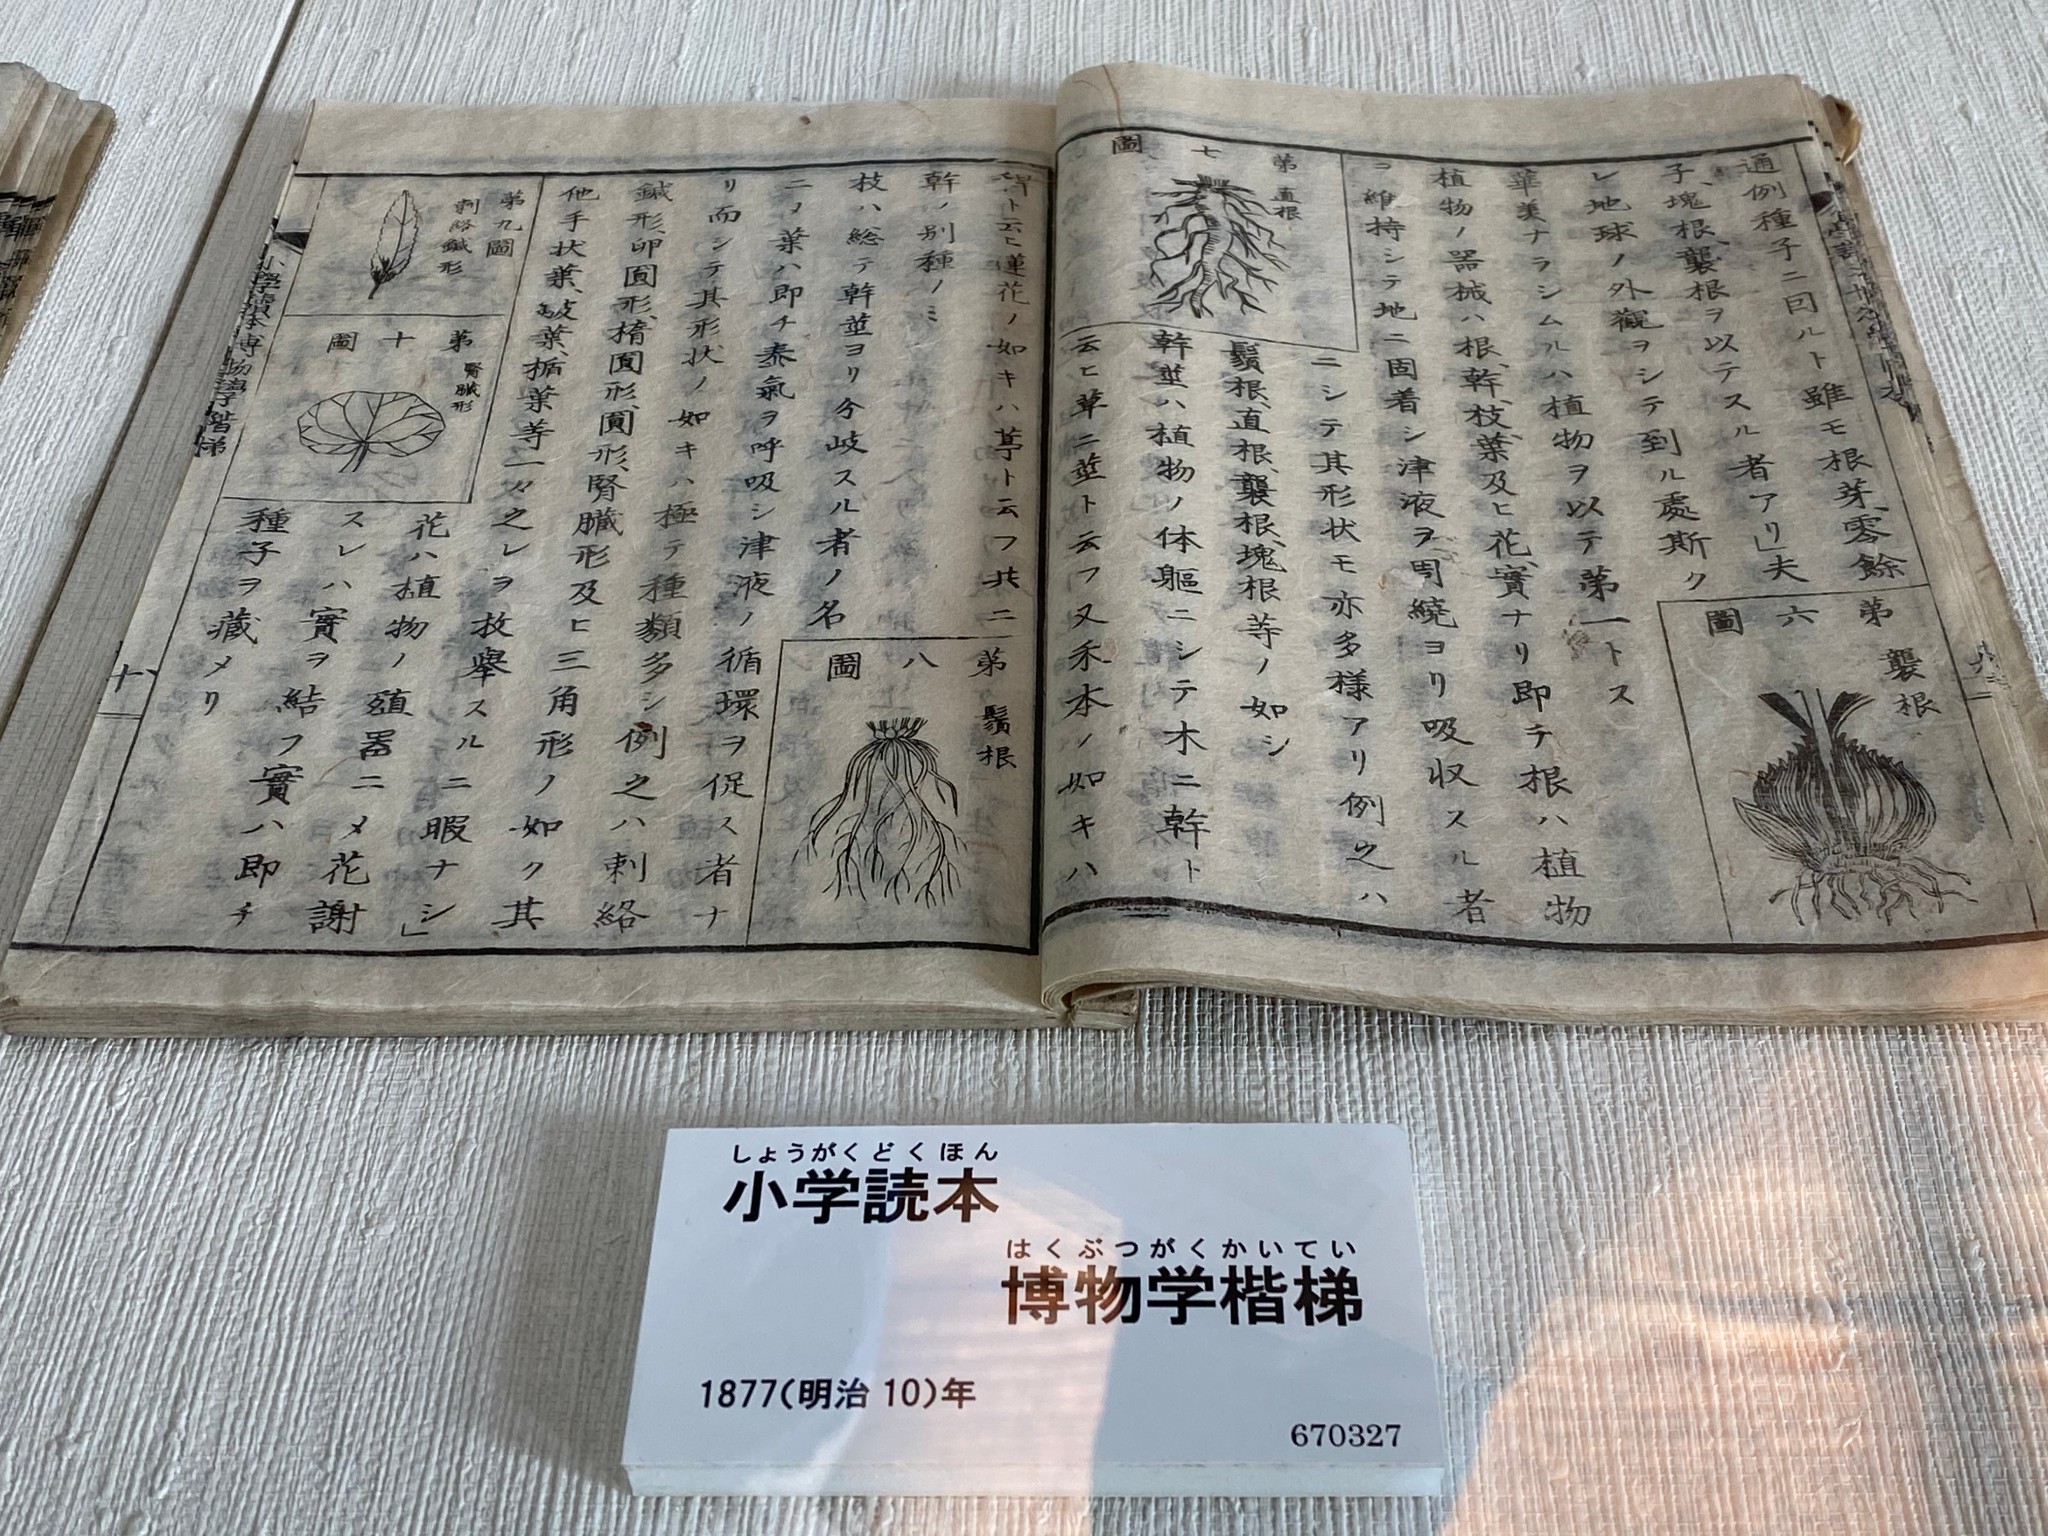 通例種子ニ回ルト雖モ根芽、零餘
子、塊根、襲根ヲ以テスル者アリ」夫
レ地球ノ外觀ヲシテ到ル處斯ク
華美ナラシムルハ植物ヲ以テ第一トス
植物ノ器械ハ根、幹、枝、葉及ヒ花、實ナリ即チ根ハ植物
ヲ維持シテ地ニ固着シ津液ヲ周繞ヨリ吸収スル者
ニシテ其形状モ亦多様アリ例之ハ
鬚根、直根、襲根、塊根等ノ如シ
幹莖ハ植物ノ体軀ニシテ木ニ幹ト
云ヒ草ニ莖ト云フ又禾本ノ如キハ
第六圖
襲根
第七圖
直根
稈ト云ヒ蓮花ノ如キハ葶ト云フ共ニ
幹ノ別種ノミ
枝ハ総テ幹莖ヨリ分岐スル者ノ名
ニメ葉ハ即チ泰氣ヲ呼吸シ津液ノ循環ヲ促ス者ナ
リ而シテ其形状ノ如キハ極テ種類多シ例之ハ刺絡
鍼形、卵圓形、楕圓形、圓形、腎臓形及ヒ三角形ノ如ク其
他手状葉、歧葉、楯葉等一々之レヲ枚舉スルニ暇ナシ」
花ハ植物ノ殖器ニメ花謝
スレハ實ヲ結フ實ハ即チ
種子ヲ藏メリ
第八圖
鬚根
第九圖
刺絡鍼形
第十圖
腎臓形
小學讀本博物學階梯
十
しょうがくどくほん
小学読本
はくぶつがくかいてい
博物学楷梯
1877(明治 10)年
670327